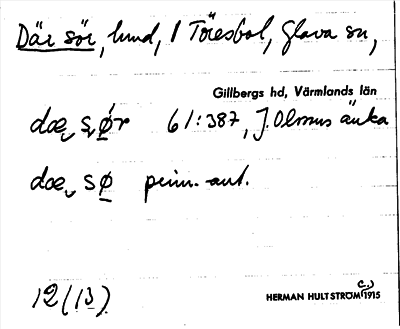 Där sör, lund, 1 Töresbol, Glava sn,
Gillbergs hd, Värmlands län
dæ sør 61:387, J. Olssons änka
dæ sø prim. ant.
12 (13)
HERMAN HULTSTRÖM (C.) 1915